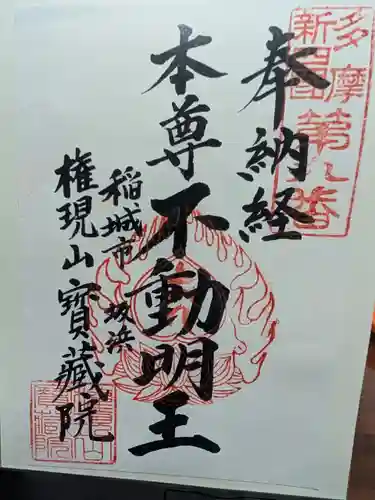 多摩
新四国
第八番
奉納経
本尊不動明王
稲城市 坂浜
権現山寶蔵院